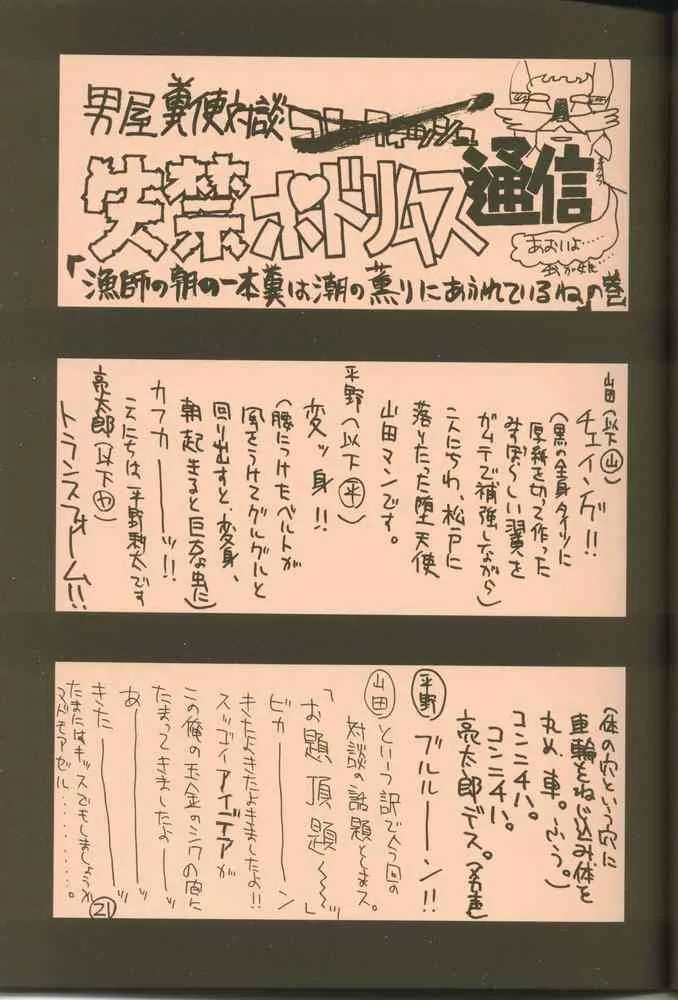 男屋糞便対談
失禁ボドリムス通信
あおいよ……
「漁師の朝の一本糞は潮の薫りにあふれているね」の巻
山田(以下山)
チェイング!!
(黒の全身タイツに
厚紙を切って作った
みすぼらしい翼を
ガムテで補強しながら)
こんにちわ、松戸に
落りたった堕天使
山田マンです。
平野(以下平)
変ッ身!!
(腰につけたベルトが
風をうけてグルグルと
回り出すと、変身、
朝起きると巨大な虫に)
カフカーーッ!!
こんにちは、平野耕太です
亮太郎(以下カ)
トランスフォーム!!
(体の穴という穴に
車輪をねじ込み体を
丸め、車。ふう。)
コンニチハ。
コンニチハ。
亮太郎デス。
平野 ブルルーーン!!
山田 という訳で今回の
対談の話題とします。
「お題頂題〜〜〜」
ピカーーーーン
きたよきたよきましたよ!!
スッゴイアイデアが
この俺の玉金のシワの間に
たまってきましたよーーッ
あーーーーッ
きたーーーーッ
たまにはキッスでもしましょうか
マドモアゼル…………。
21